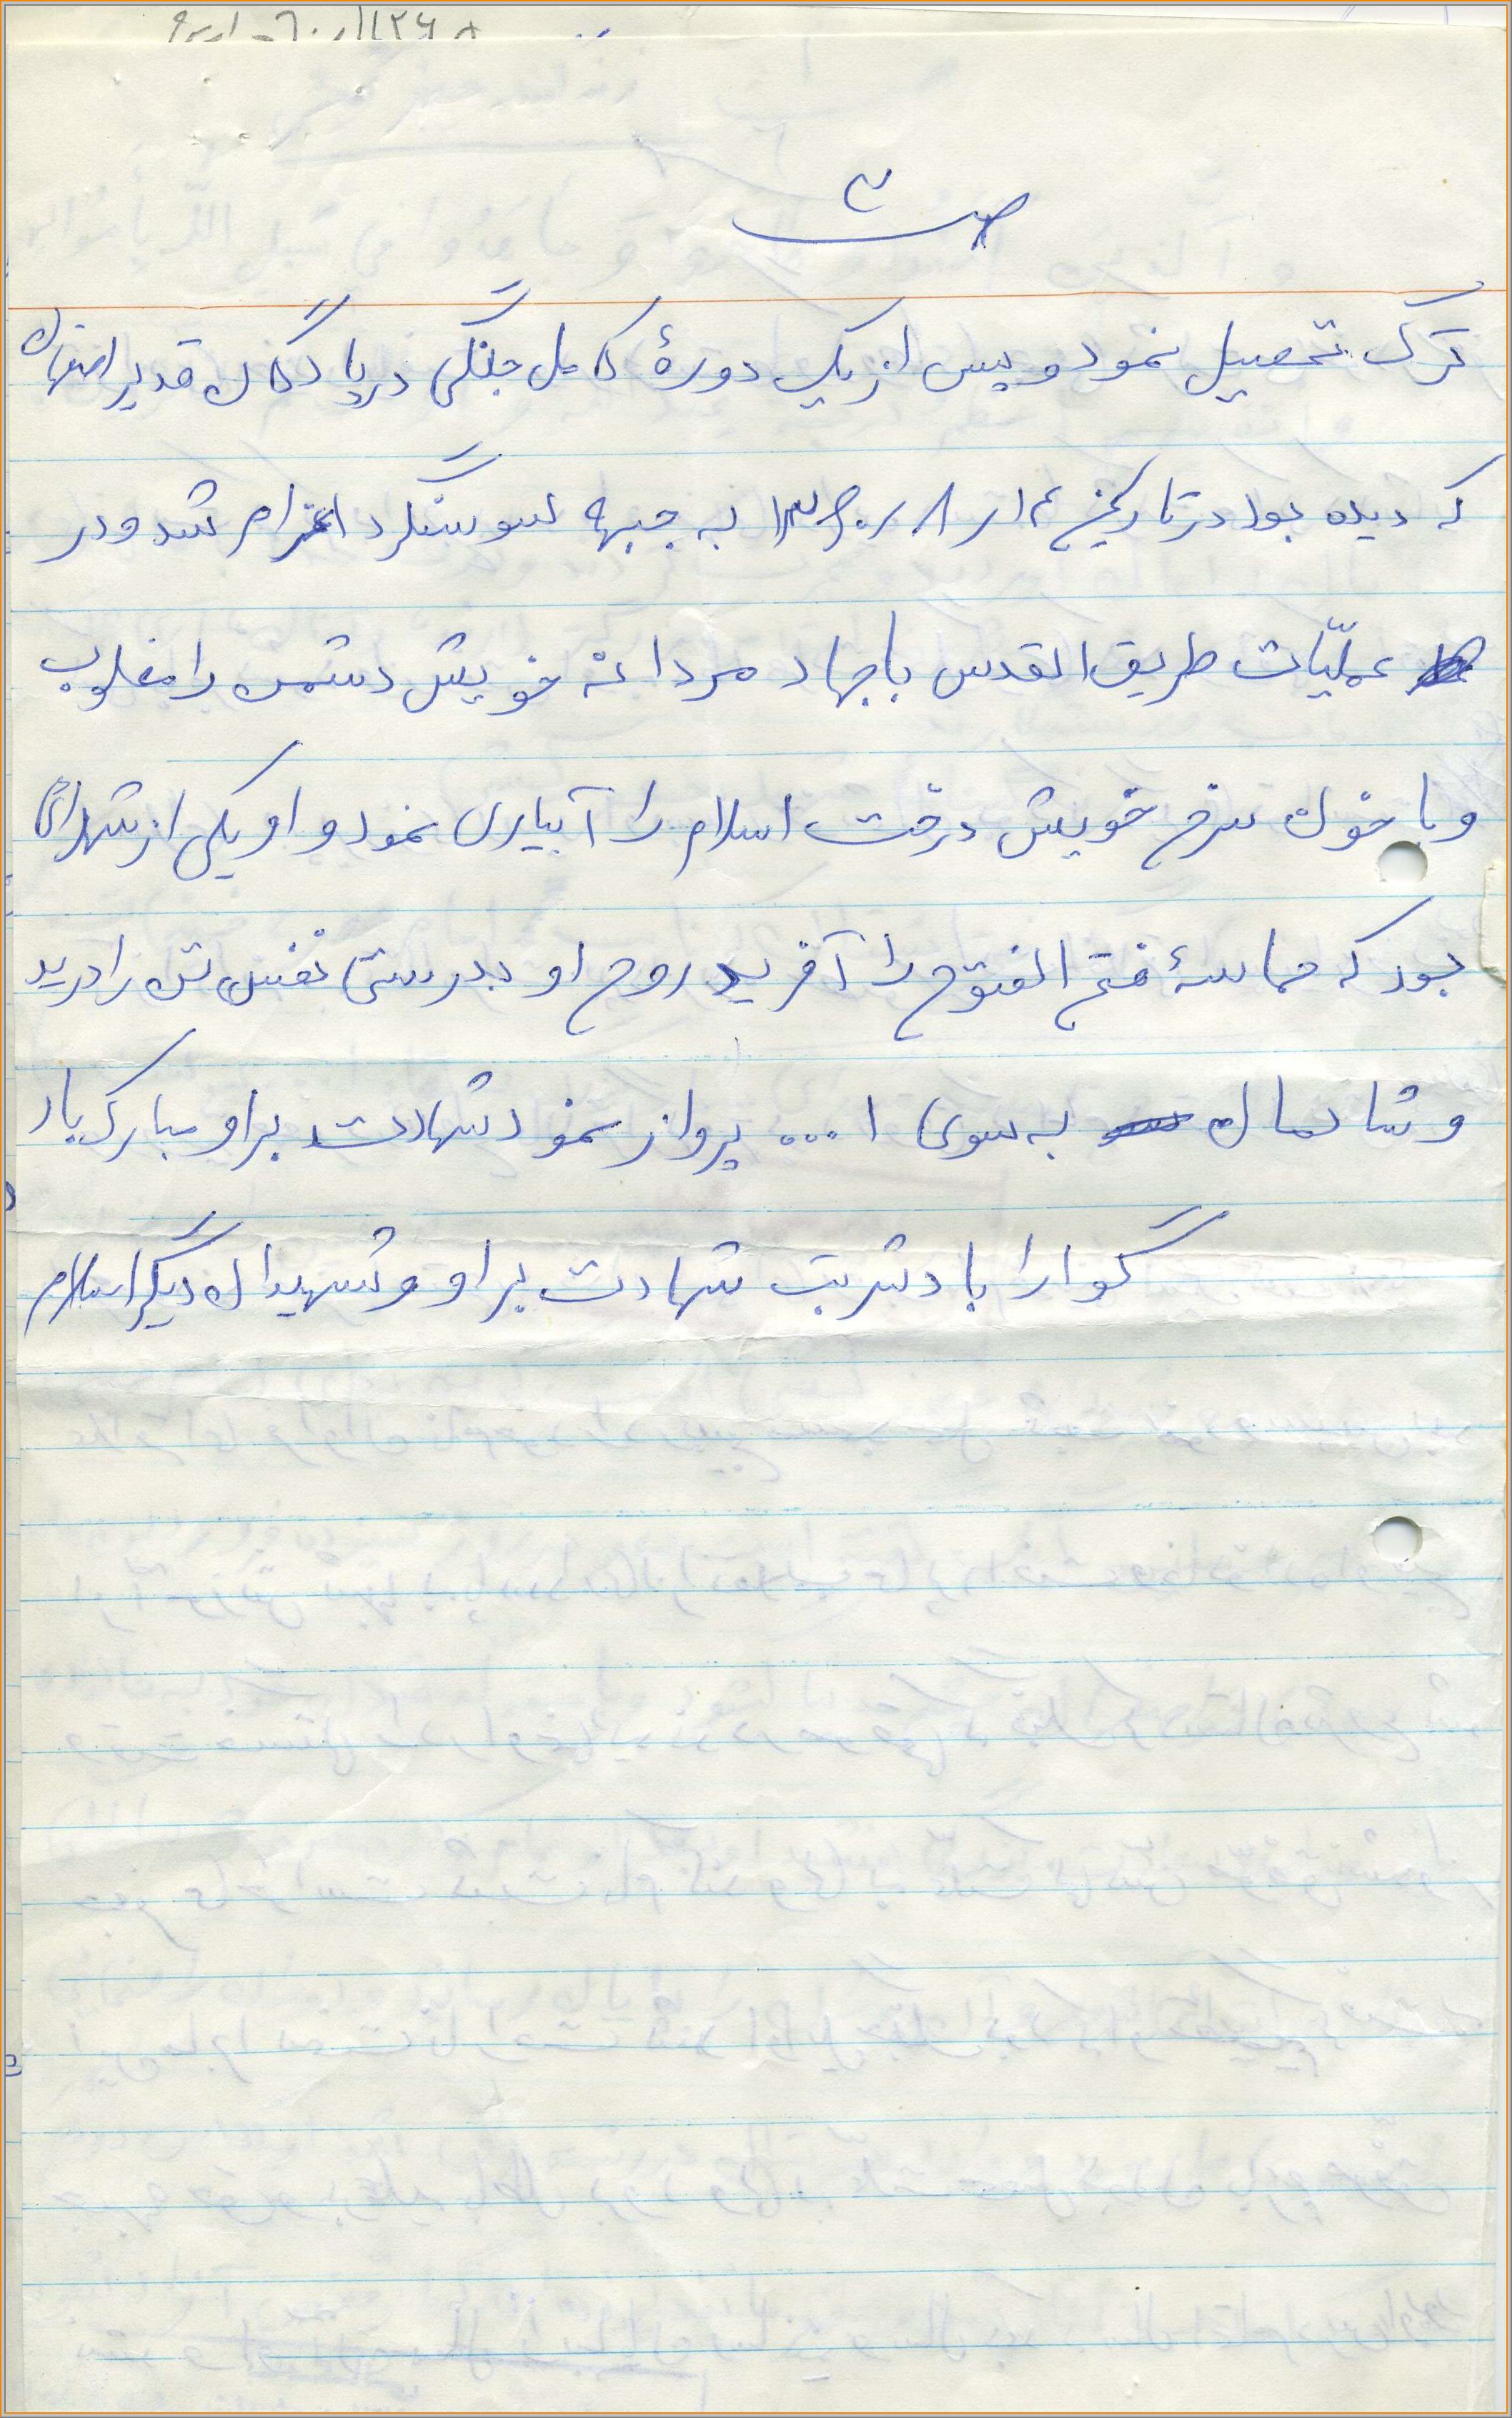 ص ۲
ترک تحصیل نمود و پس از یک دورهٔ کامل جنگی در پادگان قدیر اصفهان
که دیده بود در تاریخ ۱۳۶۰/۸/۱۴ به جبهه سوسنگرد اعزام شد و در
عملیّات طریق القدس با جهاد مردانه خویش دشمن را مغلوب
و با خون سرخ خویش درخت اسلام را آبیاری نمود و او یکی از شهدائی
بود که حماسهٔ فتح الفتوح را آفرید روح او بدرستی قفس تن را درید
و شادمان به سوی ا... پرواز نمود شهادت بر او مبارک باد
گوارا باد شربت شهادت بر او و شهیدان دیگر اسلام